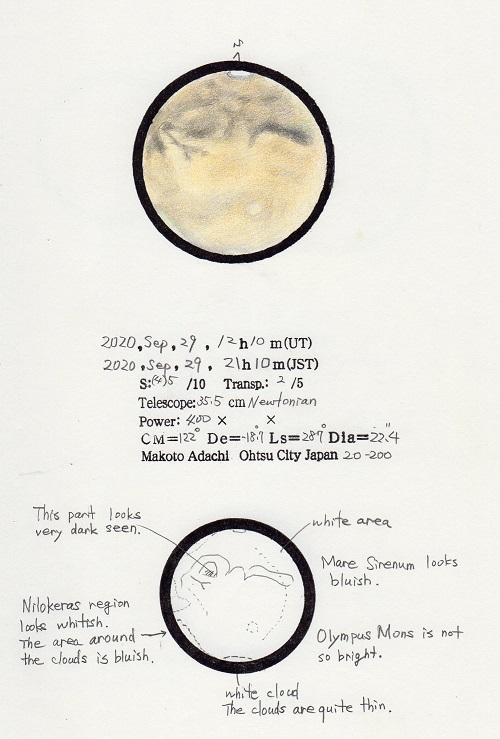 S
2020, Sep, 29, 12h10m(UT)
2020, Sep, 29, 21h10m(JST)
S:(4)5 /10 Transp.: 2 /5
Telescope:35.5 cm Newtonian
Power: 400 × ×
CM=122° De=-18.7° Ls=287° Dia=22.4"
Makoto Adachi Ohtsu City Japan 20-200
This part looks
very dark seen.
white area
Mare Sirenum looks
bluish.
Nilokeras region
looks whitish.
The area around
the clouds is bluish.
Olympus Mons is not
so bright.
white cloud
The clouds are quite thin.